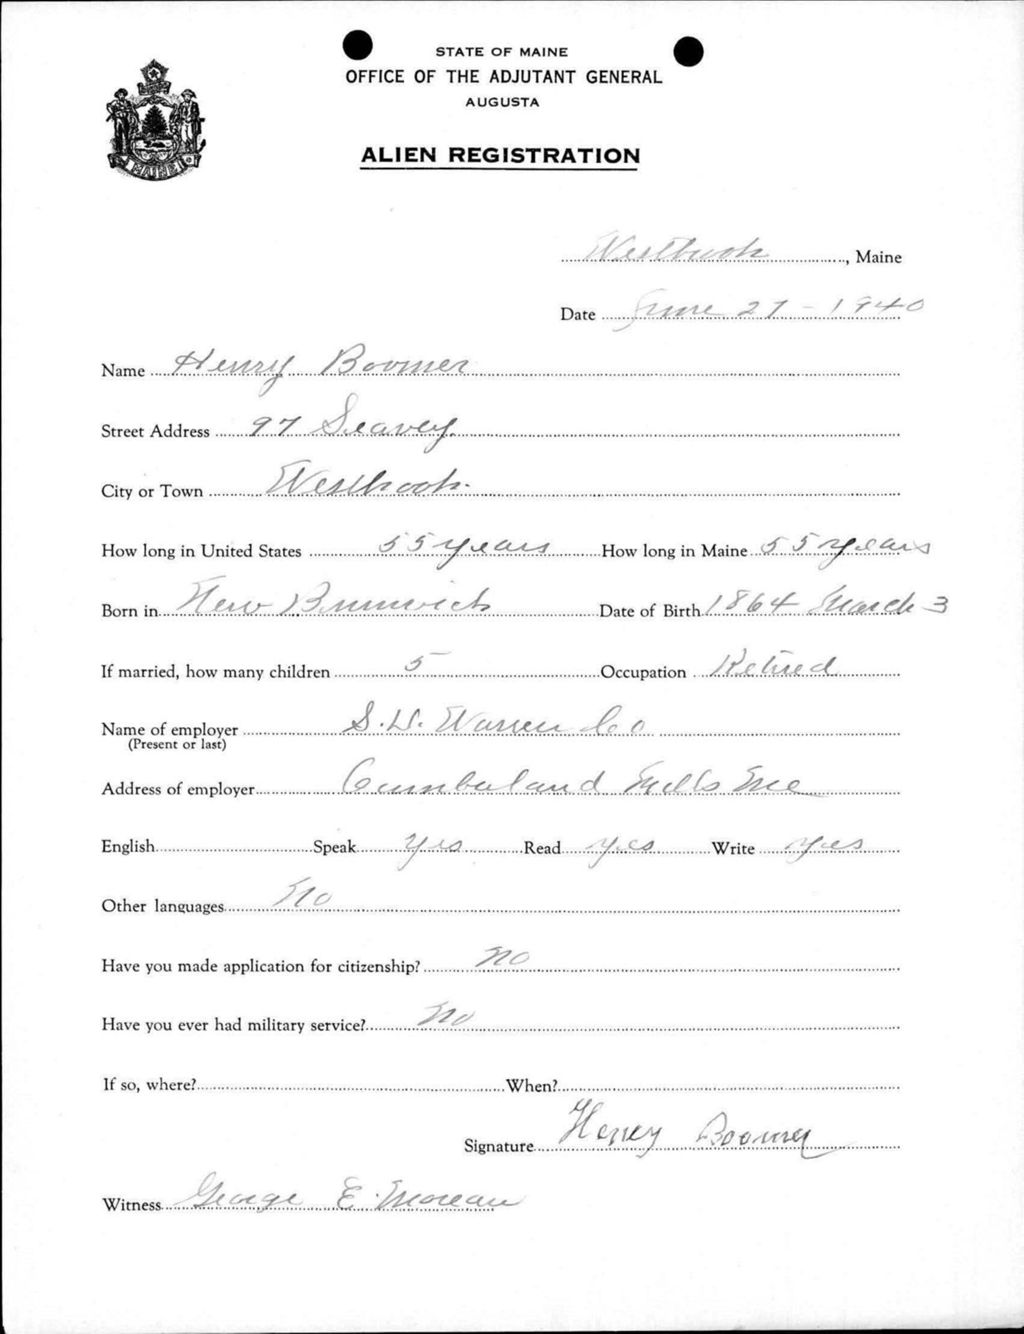 STATE OF MAINE
OFFICE OF THE ADJUTANT GENERAL
AUGUSTA
ALIEN REGISTRATION
MAINE
Westbrook, Maine
Date June 27 - 1940
Name Henry Boomer
Street Address 97 Seavey
City or Town Westbrook
How long in United States 55 years How long in Maine 55 years
Born in New Brunswick Date of Birth 1864 March 3
If married, how many children 5 Occupation Retired
Name of employer S. D. Warren Co
(Present or last)
Address of employer Cumberland Mills Me
English Speak Yes Read yes Write yes
Other languages No
Have you made application for citizenship? no
Have you ever had military service? no
If so, where? When?
Signature Henry Boomer
Witness George E. Moreau